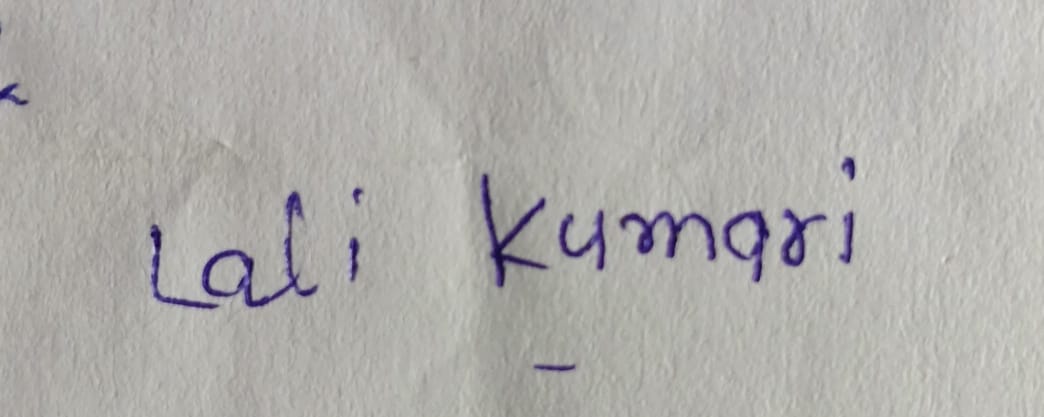 Lali Kumari